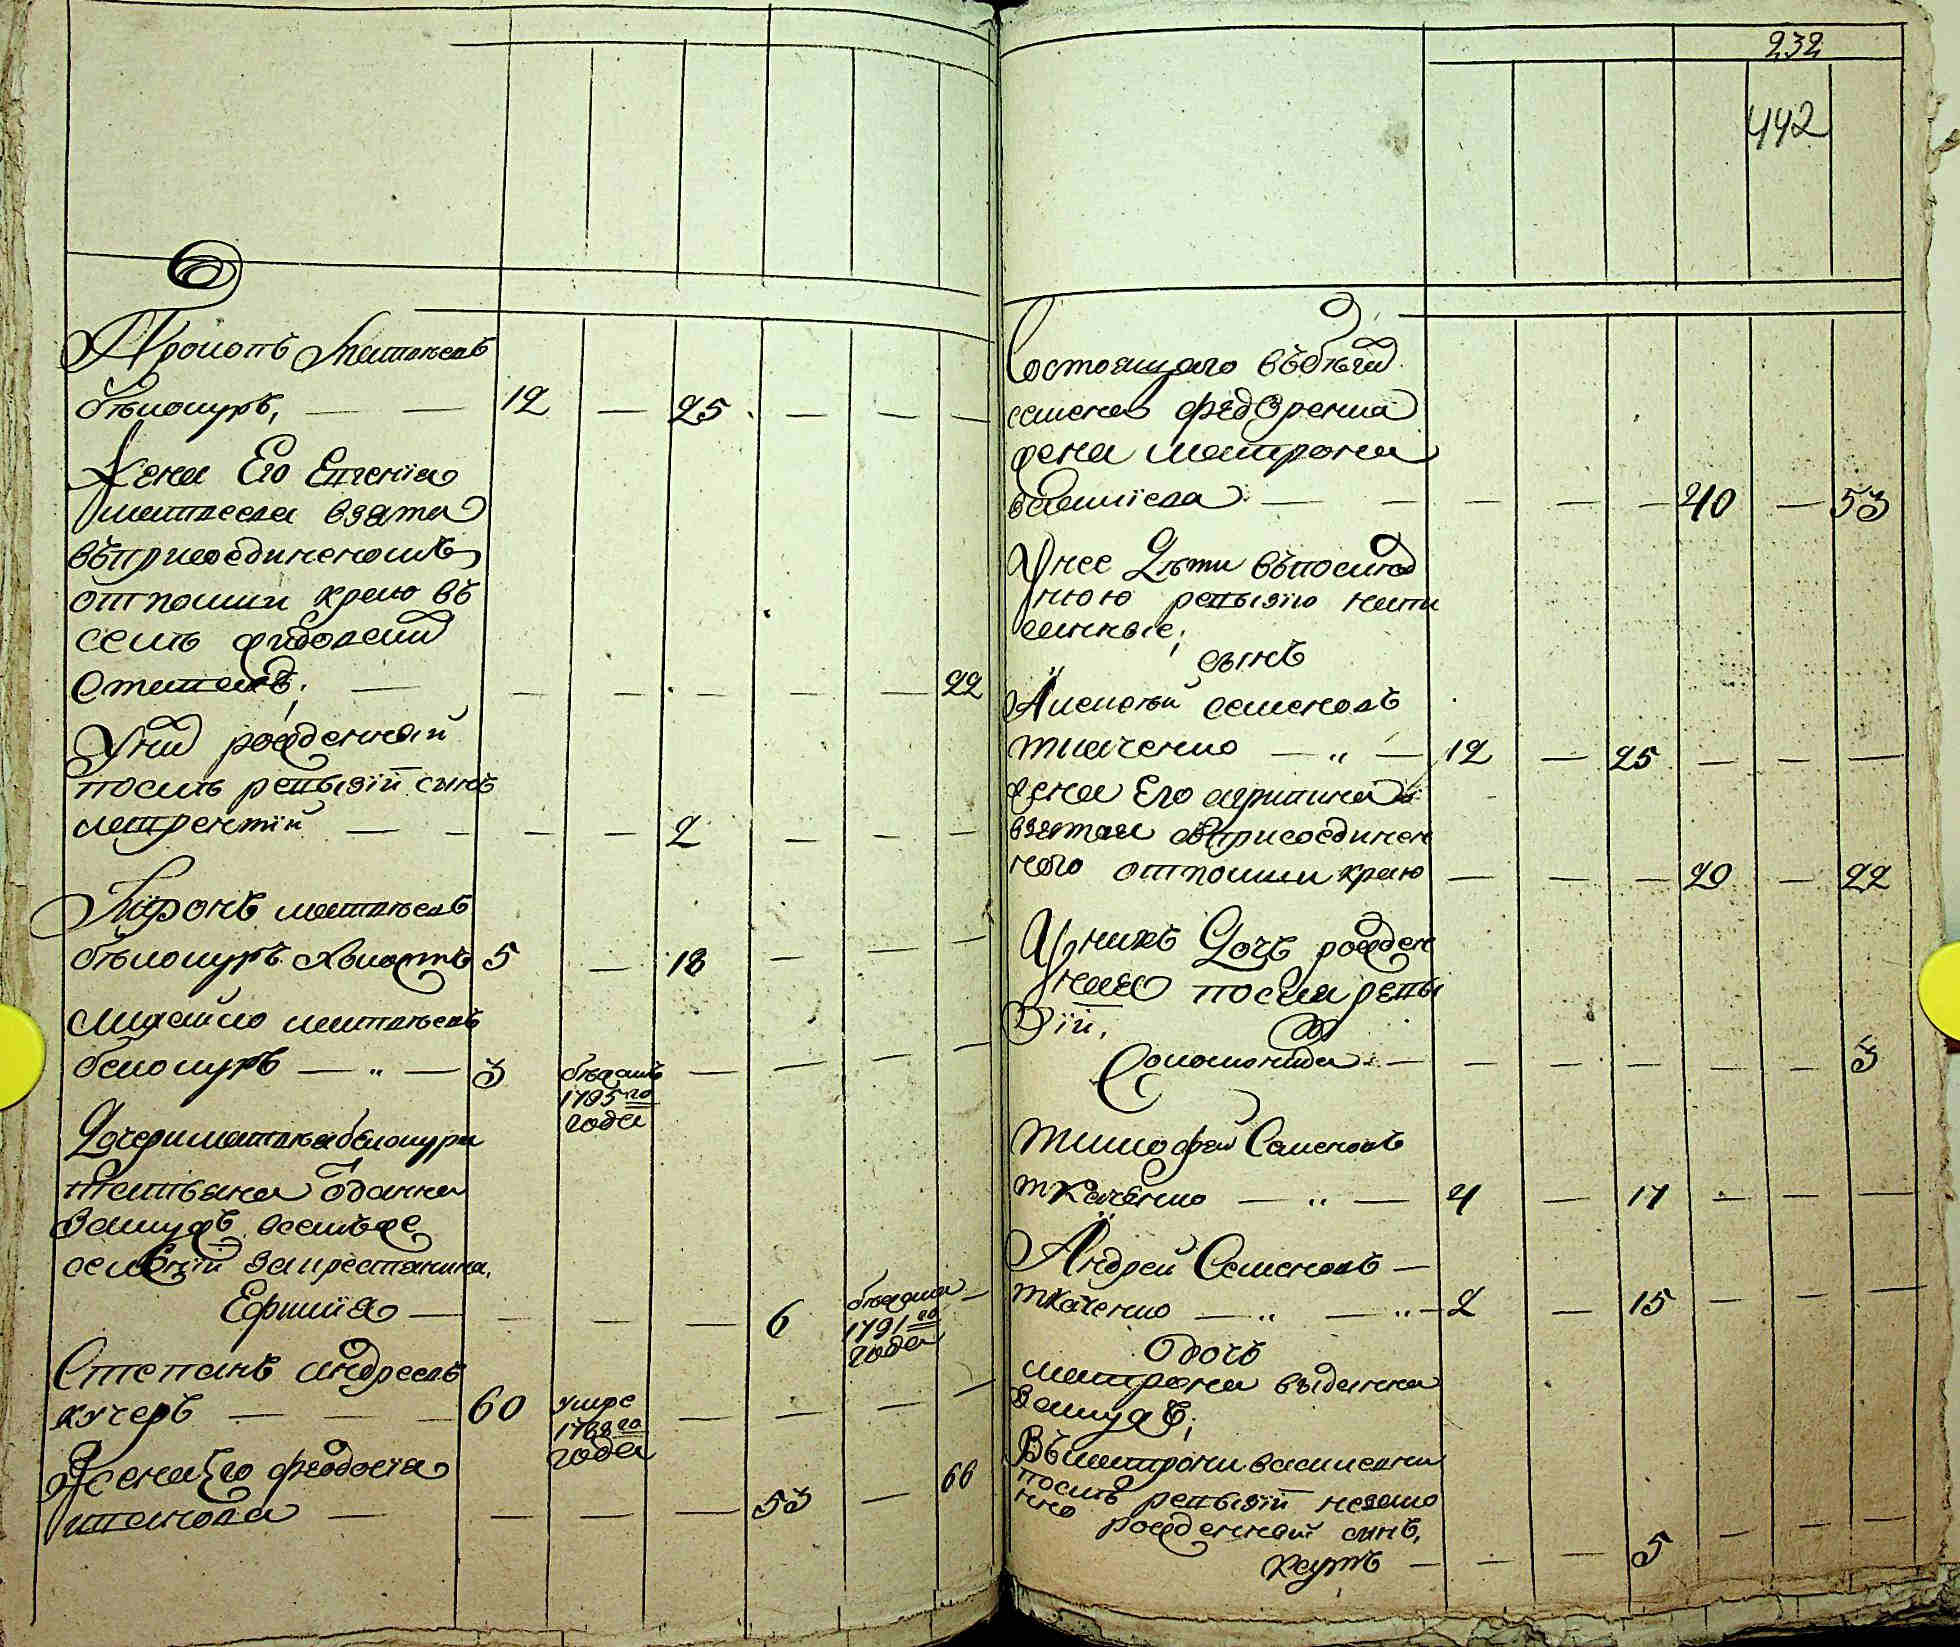 Прокопъ Матвѣевъ
бѣлокуръ, — — 12 — 25 — — —
Жена Его Евгенія
матвеева взята
въприсоединеномъ
отполши краю въ
селѣ
— — — — — — 22
Уний рожденный
послѣ ревизіи сынъ
лаврентій — — — — 2 — — —
Миронъ матвѣевъ
бѣлокуръ холостъ 5 — 18 — — —
михайло матвѣевъ
белокуръ — „ — 3 бѣжалъ — — — —
1795го
года
Дочери матвѣя белокура
татьяна отданна
взамужъ
за крестянина,
Ефимія — — — — — 6 бежала —
1791го
года
Степанъ андреевъ
кучеръ — — — 60 умре — — — —
1788го
года
Жена Его феодосія
иванова — — — — 53 — 66
232
442
Состоящаго въбѣгах
семена федоренка
жена матрона
василіева — — — — — 40 — 53
Унее Дѣти въпослед
нюю ревизію напи
санные;
сынъ
Алексѣй семеновъ
ткаченко — „ — 12 — 25 — — —
жена Его агрипина
взятая въприсоединен
ного отполши краю — — — 20 — 22
Уних Дочь рожден
ная после реви
зіи,
Соломонида — — — — — — 3
Тимофей Семеновъ
ткаченко — „ — 4 — 17 — — —
Андрей Семеновъ —
ткаченко — „ — „ — 2 — 15 — — —
Дочь
матрона выданна
взамужъ;
Въматроны василевны
послѣ ревизіи незако
нно рожденный сынъ,
карпъ — — — 5 — — —